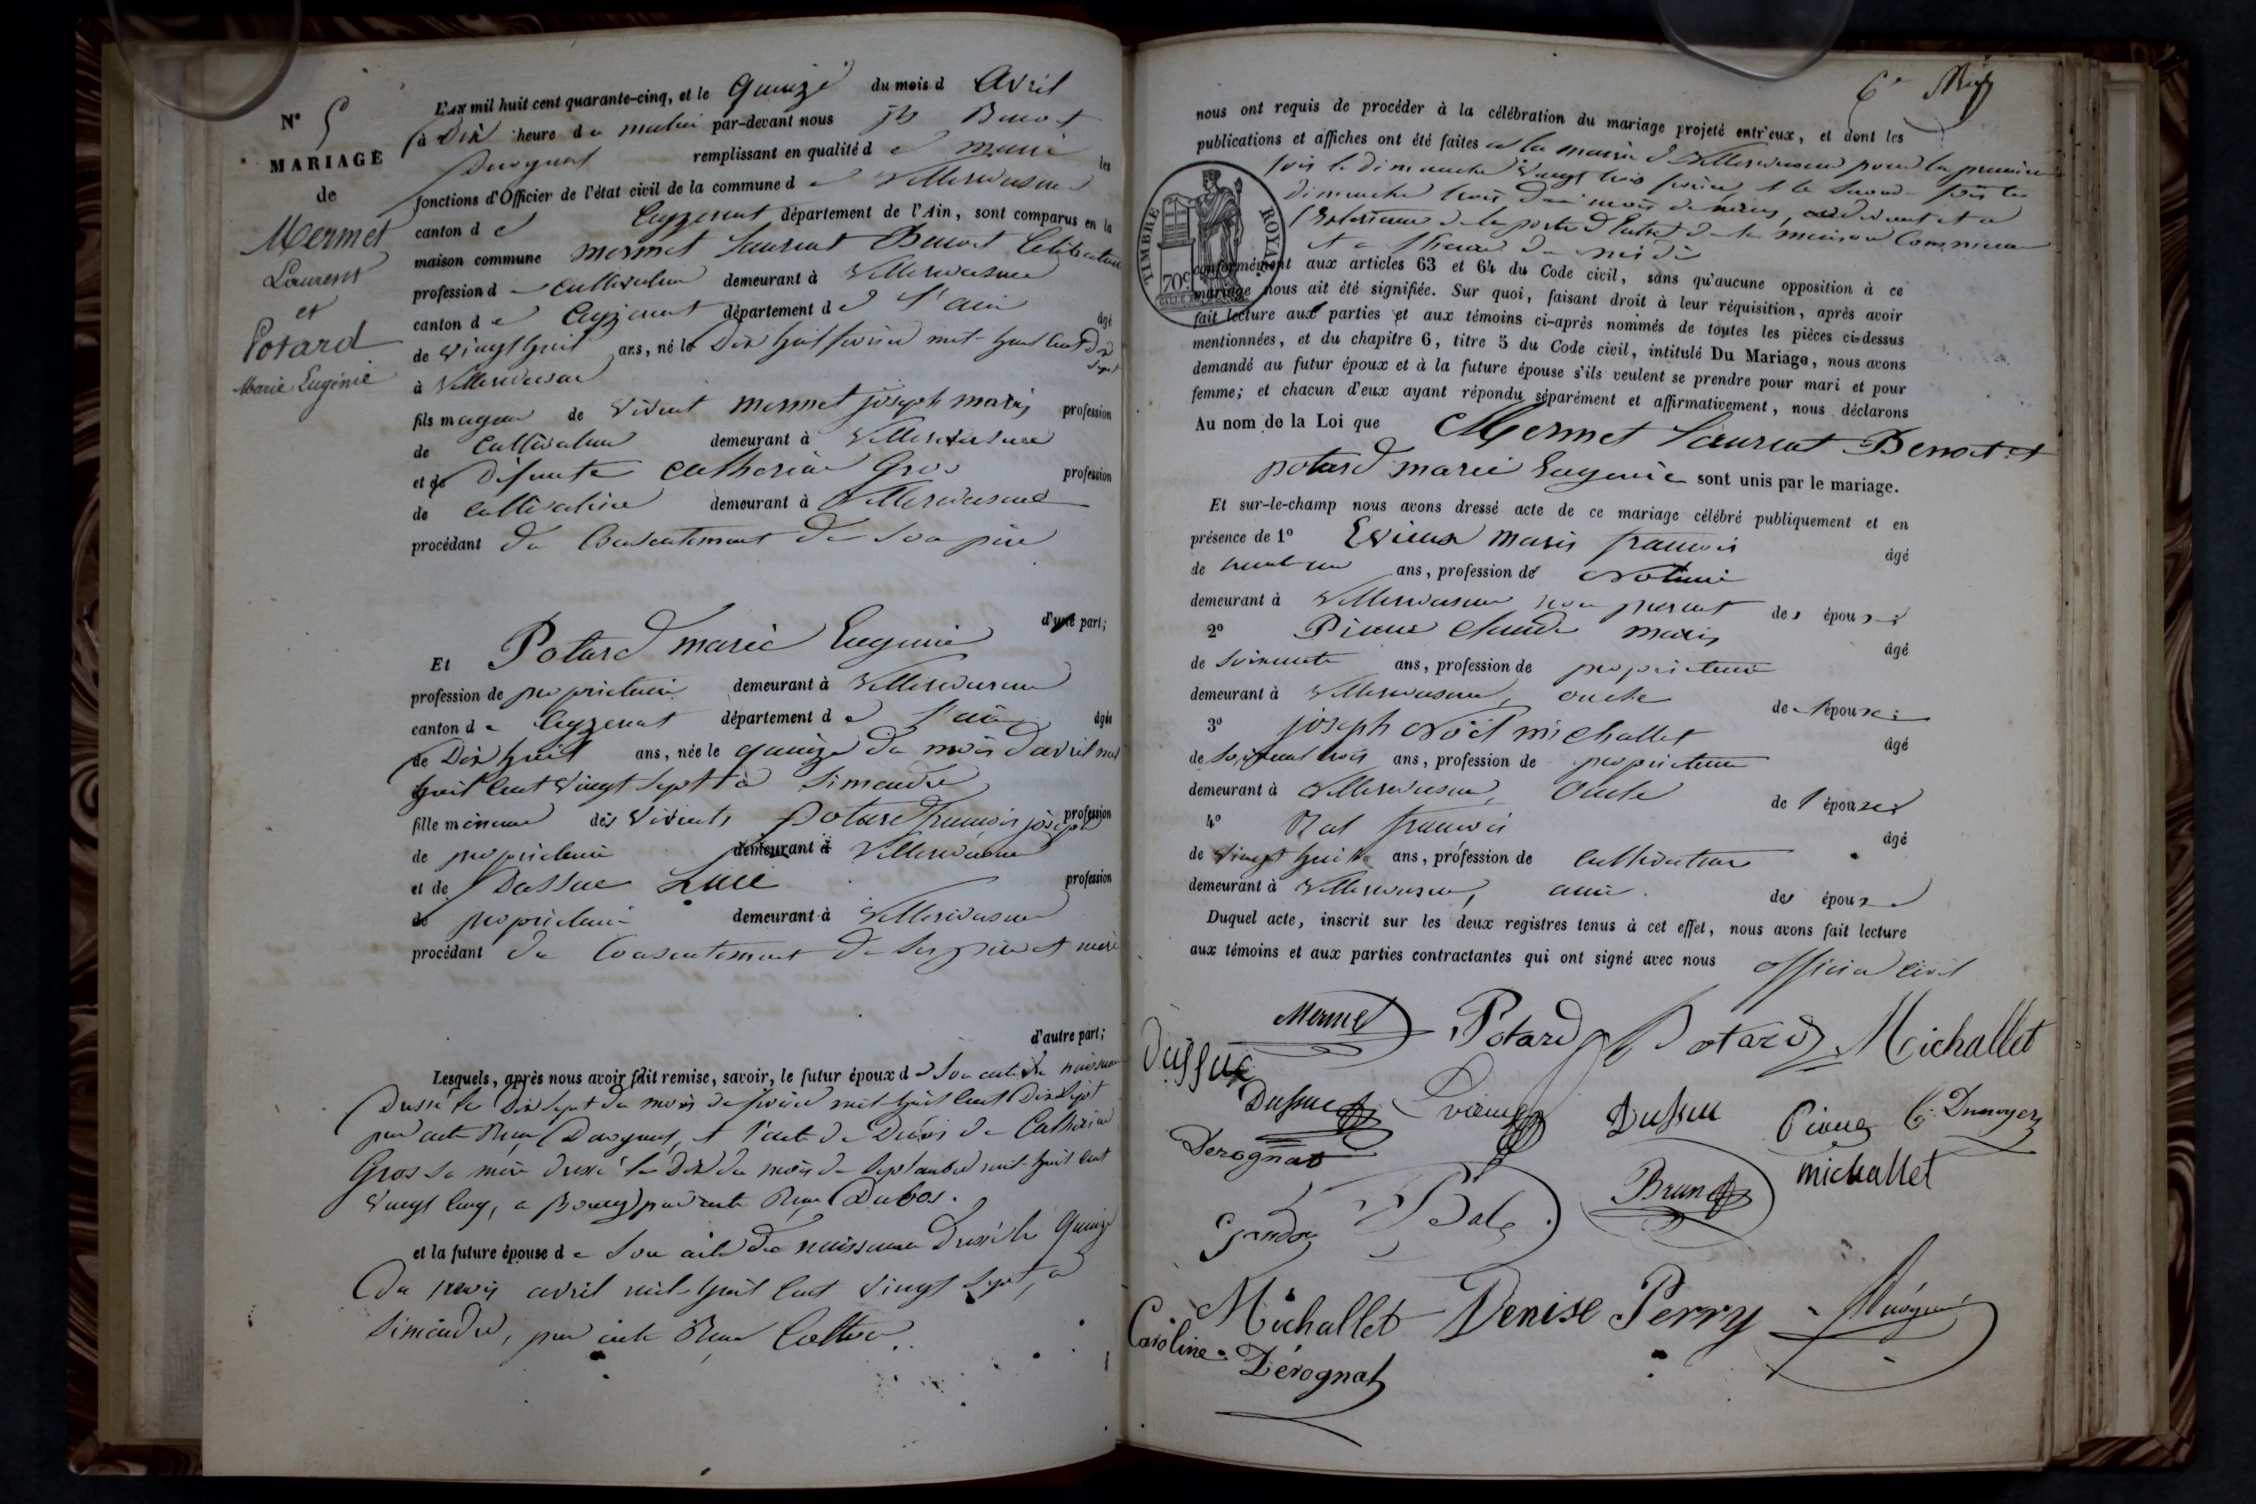 N° 5
MARIAGE
de
Mermet
Laurent
et
Potard
Marie Eugénie
L'AN mil huit cent quarante-cinq, et le quinze du mois d avril
à Dix heure du matin par-devant nous Benoit
remplissant en qualité de maire les
fonctions d'Officier de l'état civil de la commune de Villereversure
canton de Ceyzeriat, département de l'Ain, sont comparus en la
maison commune mermet Laurent Benoit Celibataire
profession de cultivateur demeurant à Villereversure
canton de Ceyzeriat département de l'ain âgé
de vingt huit ans, né le Dix huit février mil huit cent dix sept
à Villereversure
fils majeur de vivant mermet joseph marie profession
de Cultivateur demeurant à Villereversure
et de Défunte Catherine Gros profession
de cultivatrice demeurant à Villereversure
procédant du Consentement de Son père
d'une part;
Et Potard marie Eugenie
profession de propriétaire demeurant à Villereversure
canton de Ceyzeriat département de l'ain âgée
de Dix huit ans, née le quinze du mois d'avril mil
huit Cent vingt sept à Simandre
fille mineure des vivants Potard francois joseph profession
de propriétaire demeurant à Villereversure
et de Dassuc Luce profession
de propriétaire demeurant à Villereversure
procédant du Consentement de Ses père et mère
d'autre part;
Lesquels, après nous avoir fait remise, savoir, le futur époux de Son acte de naissance
Dressé le Dix Sept du mois de février mil huit cent Dix Sept
par acte Reçu Derognat, et l'acte de Décès de Catherine
Gros Sa mère dressé le Dix du mois de Septembre mil huit cent
vingt cinq, a Bourg par acte Reçu Dubos.
et la future épouse de Son acte de naissance Dressé le quinze
Du mois avril mil huit Cent vingt Sept, a
Simandre, par acte Reçu
nous ont requis de procéder à la célébration du mariage projeté entr'eux, et dont les
publications et affiches ont été faites a la mairie de Villereversure pour la première
fois le dimanche vingt trois février et le Second fois le
dimanche trois du mois de mars, audevant et a
l'Extérieur de la porte d'Entrée de la maison Commune
et a l'heure de midi
TIMBRE ROYAL
70c
conformément aux articles 63 et 64 du Code civil, sans qu'aucune opposition à ce
mariage nous ait été signifiée. Sur quoi, faisant droit à leur réquisition, après avoir
fait lecture aux parties et aux témoins ci-après nommés de toutes les pièces ci-dessus
mentionnées, et du chapitre 6, titre 5 du Code civil, intitulé Du Mariage, nous avons
demandé au futur époux et à la future épouse s'ils veulent se prendre pour mari et pour
femme; et chacun d'eux ayant répondu séparément et affirmativement, nous déclarons
Au nom de la Loi que Mermet Laurent Benoit et
potard marie Eugenie sont unis par le mariage.
Et sur-le-champ nous avons dressé acte de ce mariage célébré publiquement et en
présence de 1° Evieux marie francois âgé
de trente un ans, profession de Notaire
demeurant à Villereversure non parent des époux;
2° Pioux Claude marie âgé
de Soixante ans, profession de propriétaire
demeurant à Villereversure, oncle de l'épouse;
3° joseph Noël michallet âgé
de Soixante trois ans, profession de propriétaire
demeurant à Villereversure, Oncle de l'épouse;
4° Rat francois âgé
de vingt huit ans, profession de Cultivateur
demeurant à Villereversure, ami des époux
Duquel acte, inscrit sur les deux registres tenus à cet effet, nous avons fait lecture
aux témoins et aux parties contractantes qui ont signé avec nous officier civil
Mermet Potard Potard Michallet
Dassuc
Dassuc Evieux Dassuc Pioux C. Dunoyer
Derognat
michallet
Brun
Grandoz
Michallet Denise Perry
Caroline Dérognat